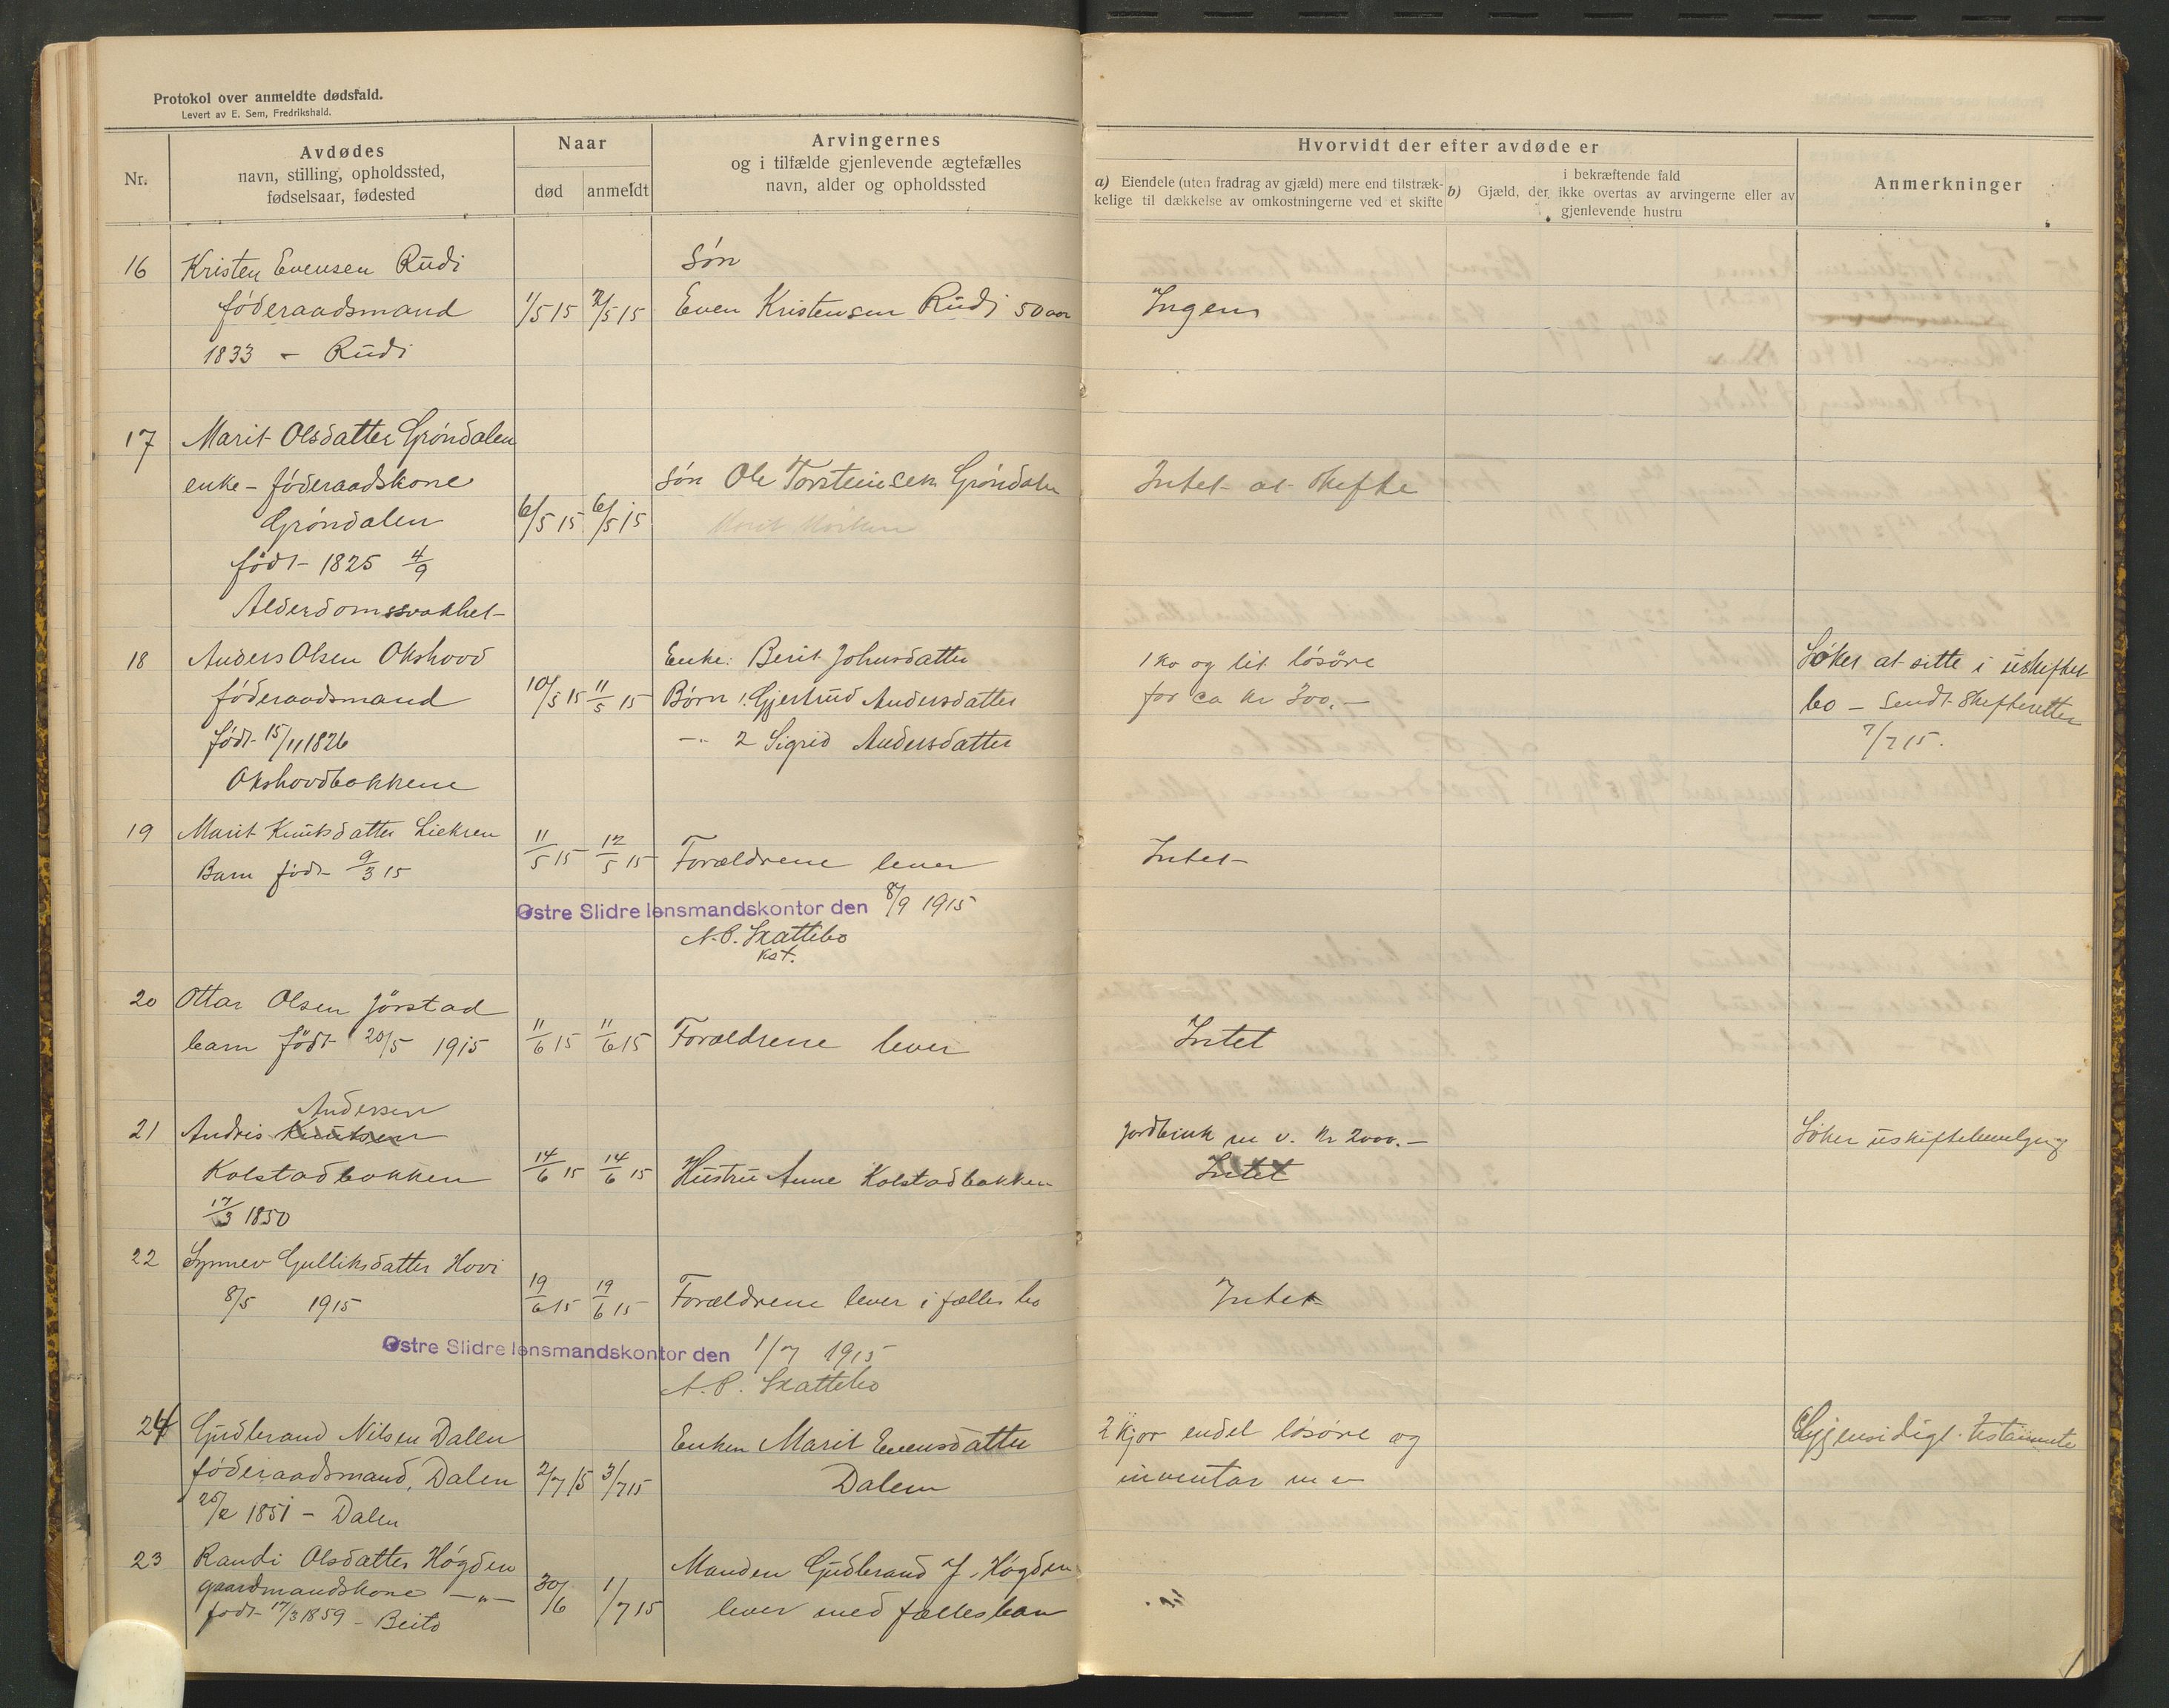 Protokol over anmeldte dødsfald.
Levert av E. Sem, Fredrikshald.
Nr.
Avdødes
navn, stilling, opholdssted,
fødselsaar, fødested
Naar
død
anmeldt
Arvingernes
og i tilfælde gjenlevende ægtefælles
navn, alder og opholdssted
Hvorvidt der efter avdøde er
a) Eiendele (uten fradrag av gjæld) mere end tilstræk-
kelige til dækkelse av omkostningerne ved et skifte
i bekræftende fald
b) Gjæld, der ikke overtas av arvingerne eller av
gjenlevende hustru
Anmerkninger
16 Kristen Evensen Rudi
föderaadsmand
1833 - Rudi
1/5 15
2/5 15
Søn
Even Kristensen Rudi 50 aar
Ingen
17 Marit Olsdatter Gröndalen
enke - föderaadskone
Gröndalen
født 1825 4/9
Alderdomssvakhet
6/5 15
6/5 15
Søn Ole Torsteinsen Gröndalen
Intet at skifte
18 Anders Olsen Okshovd
föderaadsmand
født 15/11 1826
Okshovdbakkene
10/5 15
11/5 15
Enke: Berit Johnsdatter
Børn 1. Gjertrud Andersdatter
-"- 2 Sigrid Andersdatter
1 ko og lit lösöre
for ca kr 300.-
Söker at sitte i uskiftet
bo - Sendt Skifteretten
7/7 15.
19 Marit Knutsdatter Lieksen
Barn født 9/3 15
11/5 15
12/5 15
Forældrene lever
Intet
Østre Slidre lensmandskontor den 8/9 1915
N. P. Skattebo
kst.
20 Ottar Olsen Jörstad
barn født 20/5 1915
11/6 15
11/6 15
Forældrene lever
Intet
Andersen
21 Andris Knutsen
Kolstadbakken
17/3 1850
14/6 15
14/6 15
Hustru Anne Kolstadbakken
Jordbruk m v. kr 2000.-
Intet
Söker uskiftebevilgning
22 Synnev Gulliksdatter Hovi
8/5 1915
19/6 15
19/6 15
Forældrene lever i fælles bo
Intet
Østre Slidre lensmandskontor den 1/7 1915
N. P. Skattebo
24 Gudbrand Nilsen Dalen
föderaadsmand, Dalen
25/2 1851 - Dalen
2/7 15
3/7 15
Enken Marit Evensdatter
Dalen
2 kjør endel lösöre og
inventar m v
Gjensidigt testamente
23 Randi Olsdatter Högden
gaardmandskone -"-
født 17/3 1859 - Beito
30/6
1/7 15
Manden Gudbrand J. Högden
lever med fælles barn